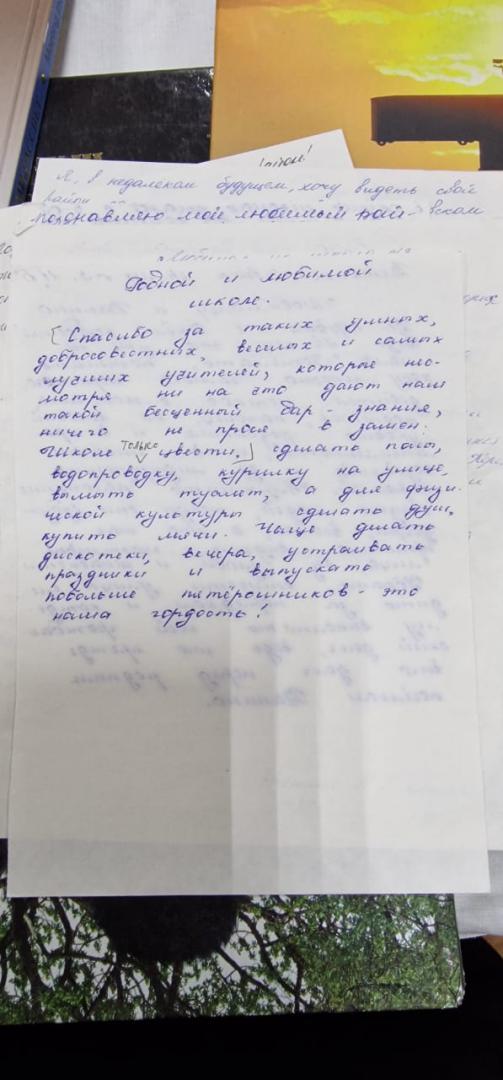 Я, в недалеком будущем, хочу видеть свой
Родной и любимой
школе.
[Спасибо за таких умных,
добросовестных, веселых и самых
лучших учителей, которые нес-
мотря ни на что дают нам
такой бесценный дар - знания,
ничего не прося в замен.
Школе только цвести,] сделать полы,
водопроводку, курилку на улице,
вымыть туалет, а для физи-
ческой культуры сделать душ,
купить мячи. Чаще делать
дискотеки, вечера, устраивать
праздники и выпускать
побольше пятёрошников - это
наша гордость!